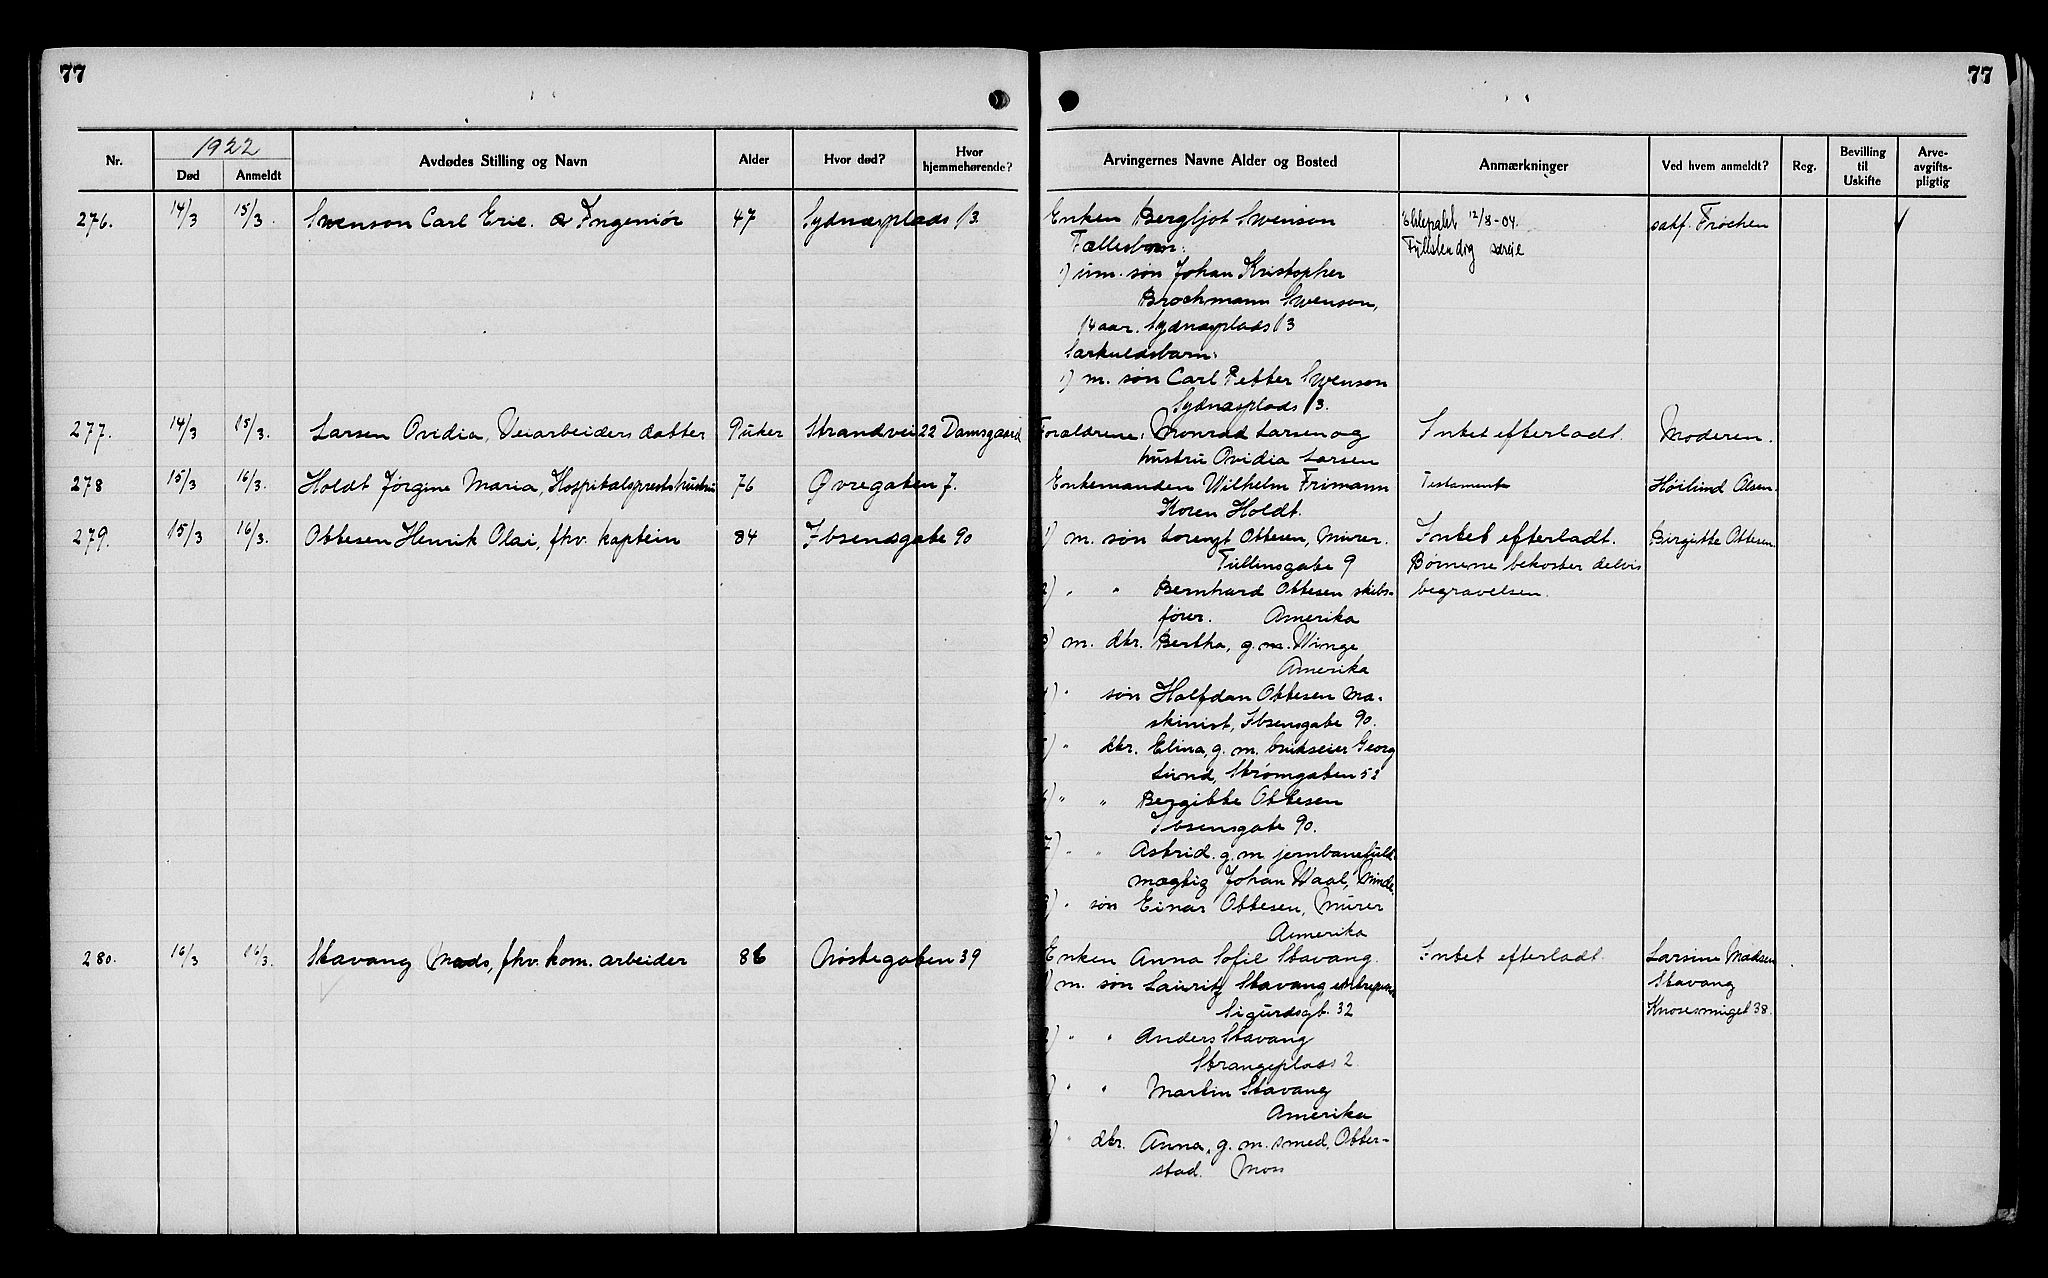 77
77
Nr.
1922
Død
Anmeldt
Avdødes Stilling og Navn
Alder
Hvor død?
Hvor hjemmehørende?
Arvingernes Navne Alder og Bosted
Anmærkninger
Ved hvem anmeldt?
Reg.
Bevilling til Uskifte
Arve-avgifts-pligtig
276. 14/3 15/3. Swenson Carl Eric. Ingeniør 47 Sydnæsplads 13.
Enken Bergljot Swenson
Fællesbarn:
1) um. søn Johan Kristopher
Brochmann Swenson,
14 aar. Sydnæsplads 13
Særkuldsbarn:
1) m. søn Carl Petter Swenson
Sydnæsplads 13.
Ektepakt 12/8-04.
Fullstendig særeie
sakf. Frøchen
277. 14/3 15/3. Larsen Ovidia, Veiarbeiders datter 9 uker Strandvei 22 Damsgaard
Forældrene: Monrad Larsen og
hustru Ovidia Larsen
Intet efterladt.
Moderen.
278 15/3 16/3. Holdt Jørgine Maria, Hospitalsprests hustru 76 Øvregaten 7.
Enkemanden Wilhelm Frimann
Koren Holdt.
Testamente
Høilund Olsen.
279. 15/3 16/3. Ottesen Henrik Olai, fhv. kaptein 84 Ibsensgate 90
1) m. søn Lorengt Ottesen, Murer.
Tullinsgate 9
2) " " Bernhard Ottesen skibs-
fører. Amerika
3) m. dtr. Bertha, g. m. Winge
Amerika
4) " søn Halfdan Ottesen ma-
skinist, Ibsensgate 90.
5) " dtr. Elina, g. m. brukseier Georg
Lund, Strømgaten 52
6) " " Bergitte Ottesen
Ibsensgate 90.
7) " " Astrid. g. m. jernbanefuld-
mægtig Johan Waal, Minde
8) " søn Einar Ottesen, Murer
Amerika
Intet efterladt.
Børnene bekoster delvis
begravelsen.
Birgitte Ottesen.
280. 16/3 16/3. Stavang Mads, fhv. kom. arbeider 86 Nøstegaten 39
Enken Anna Sofie Stavang.
1) m. søn Lauritz Stavang
Sigurdsgt. 32
2) " " Anders Stavang
Strangeplads 2
3) " " Martin Stavang
Amerika
4) " dtr. Anna, g. m. smed, Otter-
stad. Moss
Intet efterladt.
Larsine Madsen
Stavang
Knøsesmuget 38.